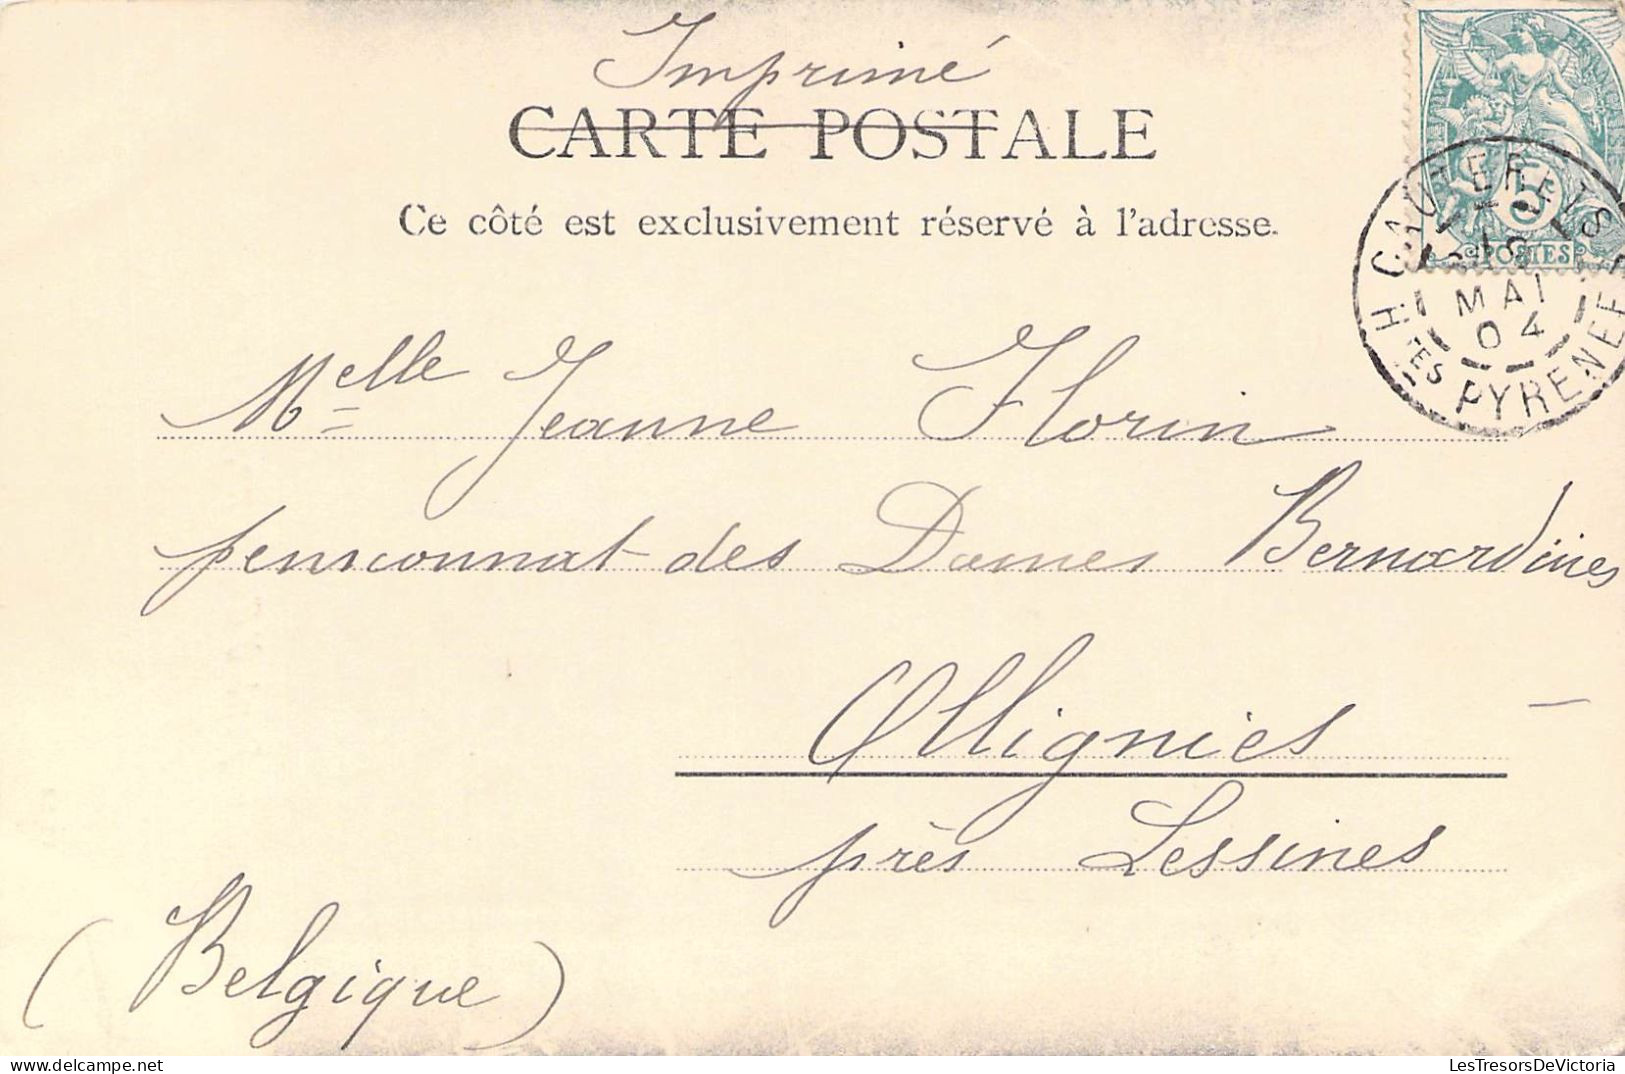 Imprimé
CARTE POSTALE
Ce côté est exclusivement réservé à l'adresse.
RÉPUBLIQUE FRANÇAISE
5
POSTES
CAUTERETS
18
MAI
04
HTES PYRENEES
Melle Jeanne Florin
pensionnat des Dames Bernardines
Ollignies
près Lessines
(Belgique)
LesTresorsDeVictoria